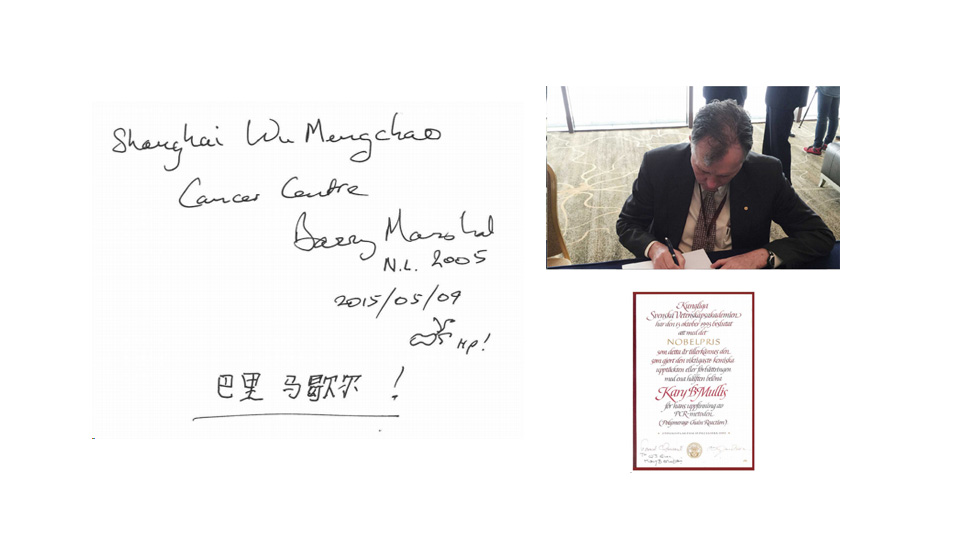 Shanghai Wu Mengchao
Cancer Centre
Barry Marshal
N.L. 2005
2015/05/09
Hp!
巴里 马歇尔 !
Kungliga
Svenska Vetenskapsakademien
har den 13 oktober 1993 beslutat
att med det
NOBELPRIS
som detta år tillerkännes den
som gjort den viktigaste kemiska
upptäckten eller förbättringen
med ena hälften belöna
Kary B Mullis
för hans uppfinning av
PCR-metoden
(Polymerase Chain Reaction)